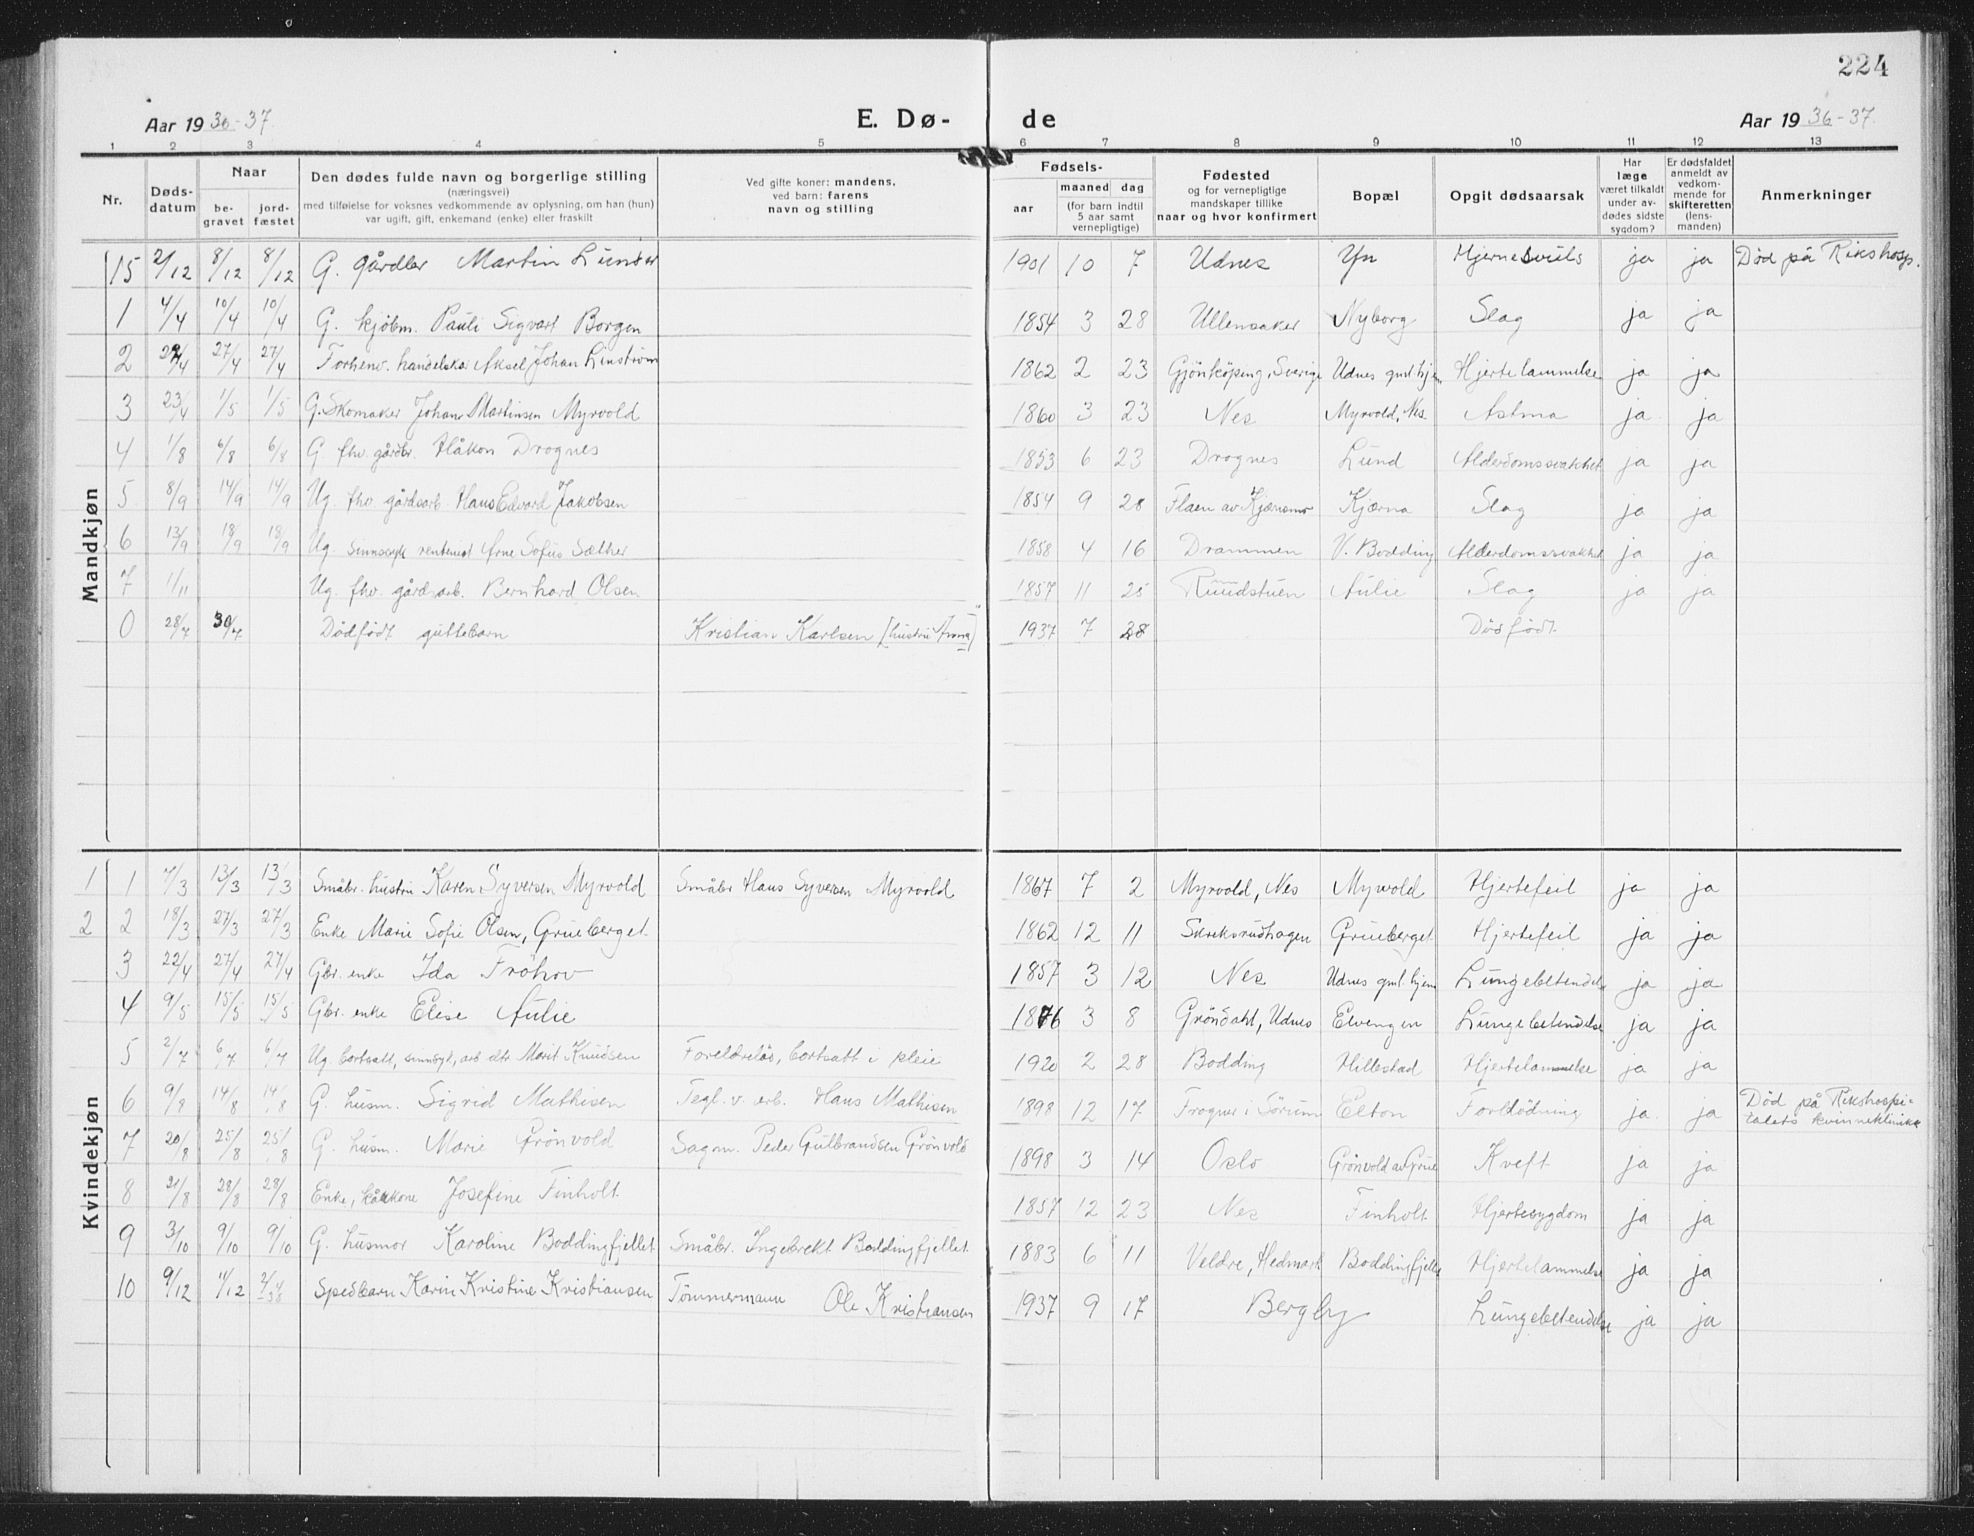 224
Aar 1936-37. E. Dø- de Aar 1936-37.
1 2 3 4 5 6 7 8 9 10 11 12 13
Nr. Døds-datum Naar be-gravet jord-fæstet Den dødes fulde navn og borgerlige stilling (næringsvei) med tilføielse for voksnes vedkommende av oplysning, om han (hun) var ugift, gift, enkemand (enke) eller fraskilt Ved gifte koner: mandens, ved barn: farens navn og stilling Fødsels- aar maaned dag (for barn indtil 5 aar samt vernepligtige) Fødested og for vernepligtige mandskaper tillike naar og hvor konfirmert Bopæl Opgit dødsaarsak Har læge været tilkaldt under av-dødes sidste sygdom? Er dødsfaldet anmeldt av vedkom-mende for skifteretten (lens-manden) Anmerkninger
Mandkjøn
15 2/12 8/12 8/12 G. gårdbr Martin 1901 10 7 Udnes Yn Hjernesvuls ja ja Død på Rikshosp.
1 4/4 10/4 10/4 G. kjøbm. Pauli Sigvart Borgen 1854 3 28 Ullensaker Nyborg Slag ja ja
2 27/4 27/4 Forhenv. handelska. Aksel Johan Linström 1862 2 23 Gjönköping, Sverige Udnes gml.hjem Hjertelammelse ja ja
3 23/4 1/5 1/5 G. Skomaker Johan Martinsen Myrvold 1860 3 23 Nes Myrvold, Nes Astma ja ja
4 1/8 6/8 6/8 G. fhv. gårdbr. Håkon Drognes 1853 6 23 Drognes Lund Alderdomssvakhet ja ja
5 8/9 14/9 14/9 Ug. fhv gårdsarb. Hans Edvard Jakobsen 1854 9 28 Flaen av Kjærnsmo Kjærna Slag ja ja
6 13/9 18/9 18/9 Ug. sinnssyk rentenist Arne Sofus Sæther 1858 4 16 Drammen V. Bodding Alderdomssvakhet ja ja
7 1/11 Ug. fhv. gårdsarb. Bernhard Olsen 1857 11 25 Ruudstuen Aulie Slag ja ja
0 28/7 30/7 Dødfødt guttebarn Kristian Karlsen [hustru Anna] 1937 7 28 Dødfødt.
Kvindekjøn
1 1 7/3 13/3 13/3 Småbr. hustru Karen Syversen Myrvold Småbr Hans Syversen Myrvold 1867 7 2 Myrvold, Nes Myrvold Hjertefeil ja ja
2 2 18/3 27/3 27/3 Enke Marie Sofie Olsen, Grueberget 1862 12 11 Grueberget Hjertefeil ja ja
3 22/4 27/4 27/4 Gbr. enke Ida Fröhov 1857 3 12 Nes Udnes gml.hjem Lungebetendelse ja ja
4 9/5 15/5 15/5 Gbr. enke Elise Aulie 1876 3 8 Gröndahl, Udnes Elvengen Lungebetendelse ja ja
5 2/7 6/7 6/7 Ug. bortsatt, sinnsyk, arb. dtr Marit Knudsen Foreldreløs, bortsatt i pleie 1920 2 28 Bodding Hillestad Hjertelammelse ja ja
6 9/8 14/8 14/8 G. husm. Sigrid Mathisen Tegl.v. arb. Hans Mathisen 1898 12 17 Frogner i Sörum Elton Forblödning ja ja Død på Rikshospi-
talets kvinneklinikk
7 20/8 25/8 25/8 G. husm. Marie Grönvold Sagm. Peder Gulbrandsen Grönvold 1898 3 14 Oslo Grönvold av Grue Kreft ja ja
8 21/8 28/8 28/8 Enke, kårkone Josefine Finholt 1857 12 23 Nes Finholt Hjertesygdom ja ja
9 3/10 9/10 9/10 G. husmor Karoline Boddingfjellet Småbr. Ingebrekt Boddingfjellet 1883 6 11 Veldre, Hedmark Boddingfjellet Hjertelammelse ja ja
10 9/12 11/12 2/1 38 Spedbarn Karin Kristine Kristiansen Tömmermann Ole Kristiansen 1937 9 17 Bergby Lungebetendelse ja ja